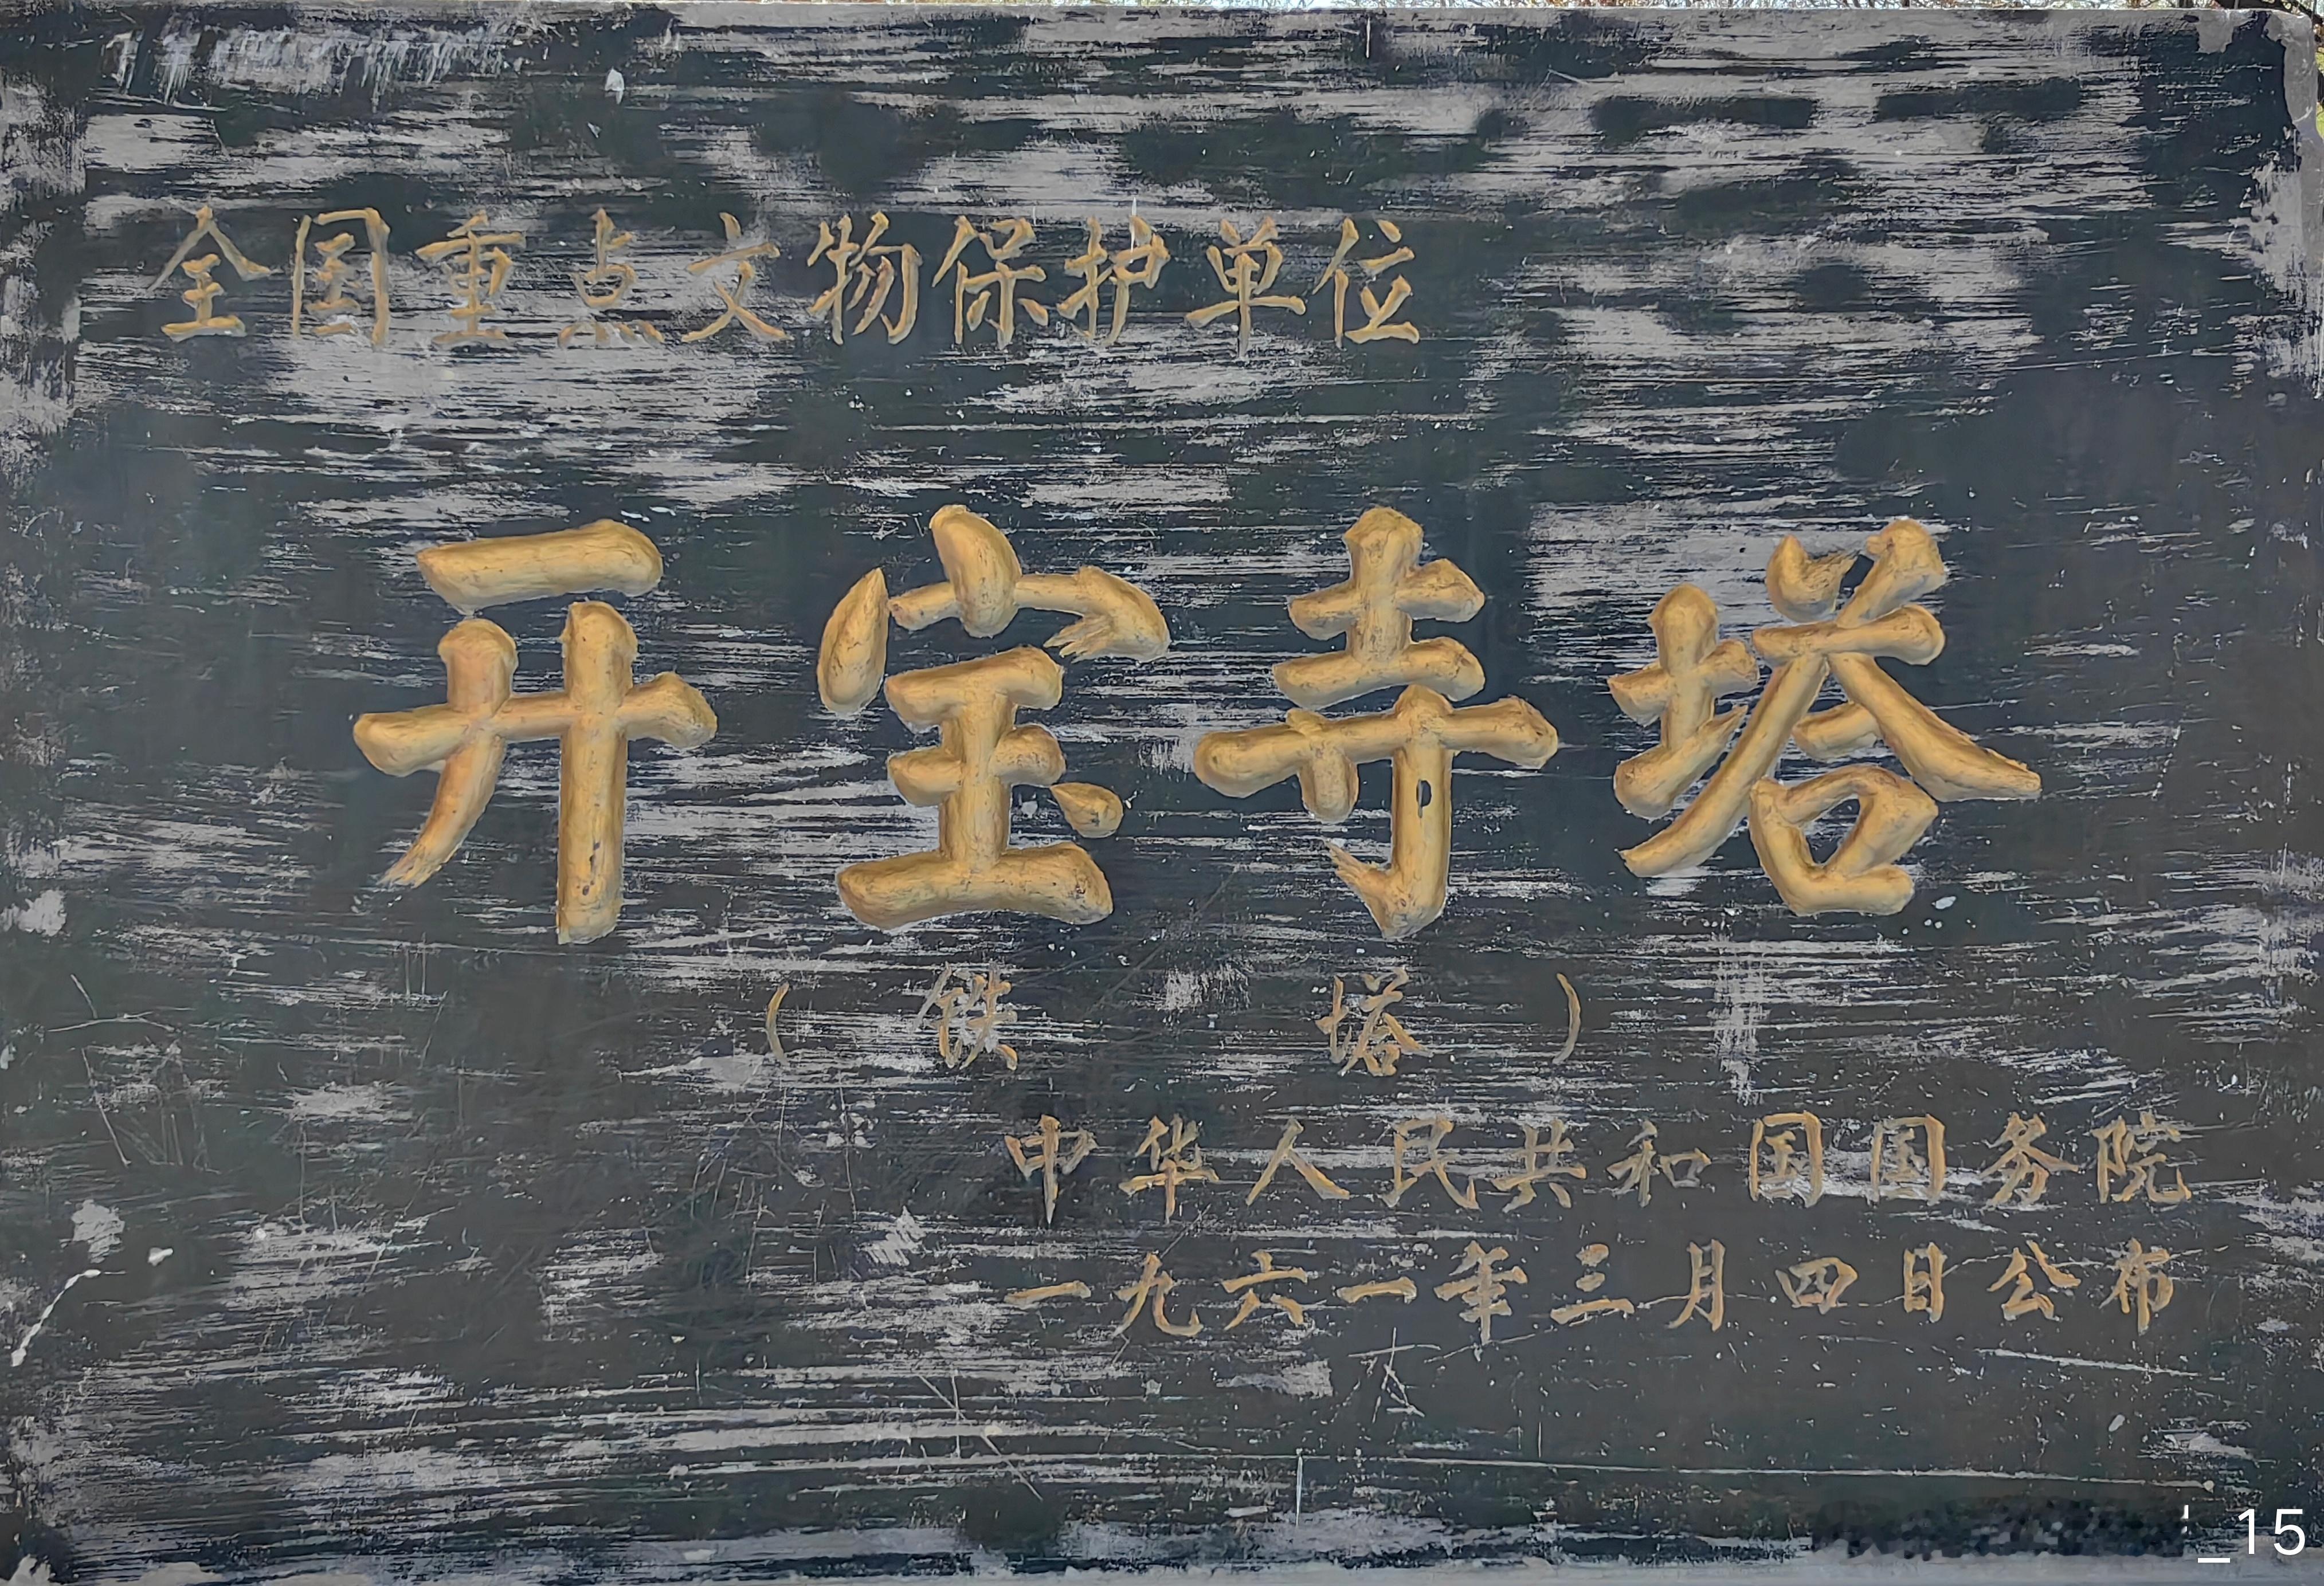 全国重点文物保护单位
开宝寺塔
（铁塔）
中华人民共和国国务院
一九六一年三月四日公布
_15